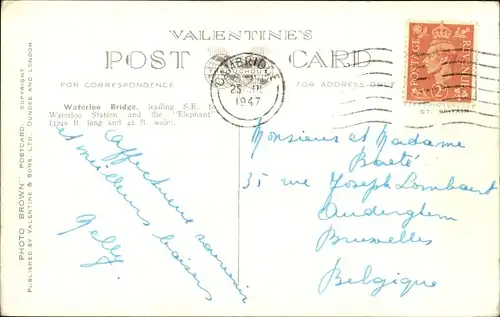 VALENTINE'S
POST CARD
FOR CORRESPONDENCE
FOR ADDRESS ONLY
CAMBRIDGE
1947
POSTAGE
REVENUE
Waterloo Bridge, leading S.E. to
Waterloo Station and the "Elephant"
(1240 ft. long and 42 ft. wide).
"PHOTO BROWN" POSTCARD. COPYRIGHT
PUBLISHED BY VALENTINE & SONS, LTD. DUNDEE AND LONDON.
Affectueux souvenir
et meilleurs baisers
Nelly.
Monsieur et Madame
Baeté
35 rue Joseph Lombaert
Auderghem
Bruxelles
Belgique